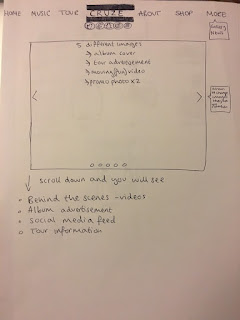 HOME MUSIC TOUR CRUZE ABOUT SHOP MORE
5 different images
→ album cover
→ tour advertisement
→ promo photo x2
scroll down and you will see
Behind the scenes - videos
Album advertisement
Social media feed
Tour information